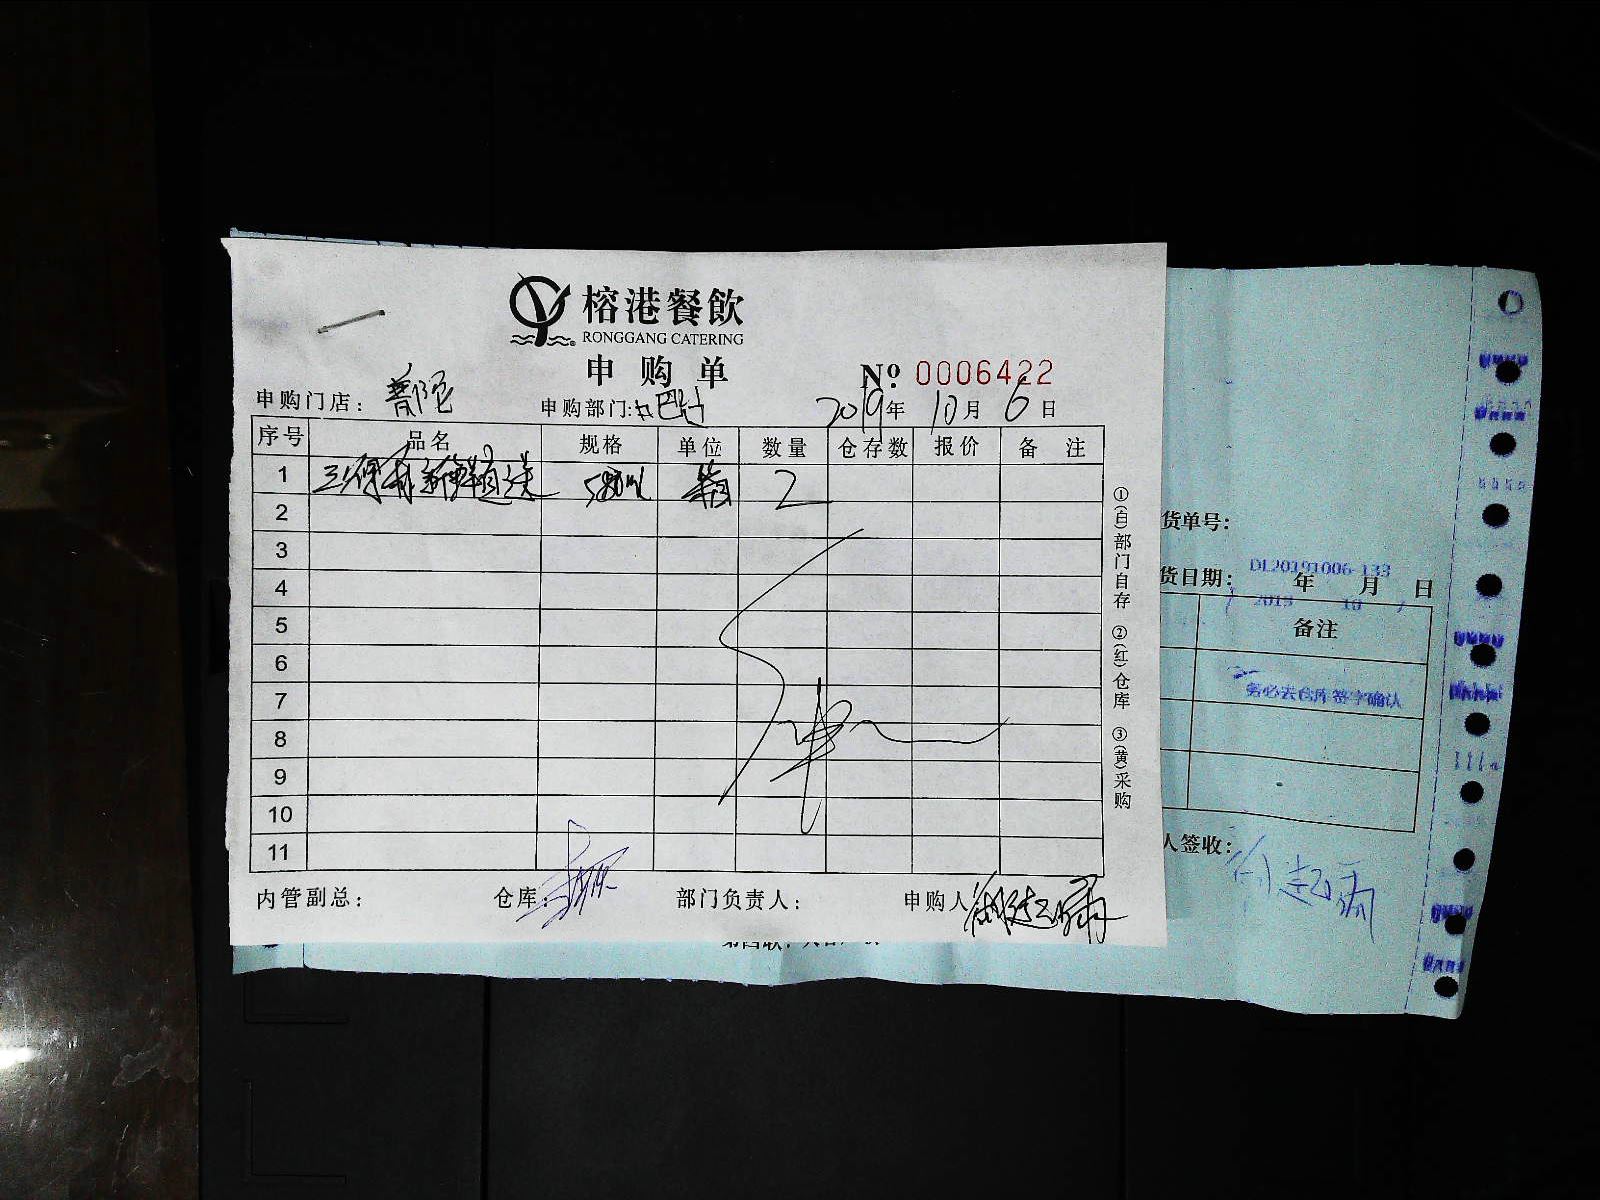 榕港餐飲
RONGGANG CATERING
申购单
№: 0006422
申购门店: 普陀 申购部门: 水吧 2019年10月6日
序号 品名 规格 单位 数量 仓存数 报价 备注
1 580ml 箱 2
2
3
4
5
6
7
8
9
10
11
内管副总: 仓库: 部门负责人: 申购人
①(白)部门自存 ②(红)仓库 ③(黄)采购
货单号:
DL20191006-133
货日期: 年 月 日
2019 10 7
备注
务必去仓库签字确认
人签收: